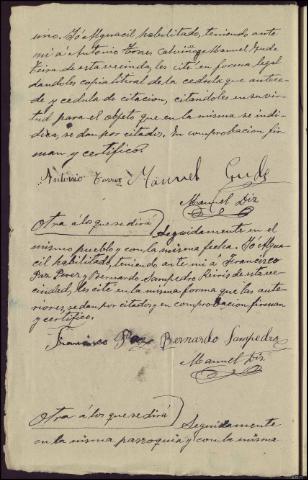 uno. Yó Alguacil habilitado, teniendo ante
mi á Antonio Torres Calviño y Manuel Gude
de esta vecindad, les cité en forma legal
dandoles copia literal de la cedula que antece-
de y cedula de citacion, citandoles en su vir-
tud para el objeto que en la misma se indi-
ca, se dan por citados. En comprobacion fir-
man y certifico.
Antonio Torres Manuel Gude
Manuel Diz
Otra á los que se dirá) Seguidamente en el
mismo pueblo y con la misma fecha. Yó Algua-
cil habilitado, teniendo ante mi á Francisco
Paz Perez y Bernardo Sampedro de esta ve-
cindad, les cité en la misma forma que las ante-
riores, se dan por citados y en comprobacion firman
y certifico.
Francisco Paz Bernardo Sampedro
Manuel Diz
Otra á los que se dirá) Seguidamente
en la misma parroquia y con la misma